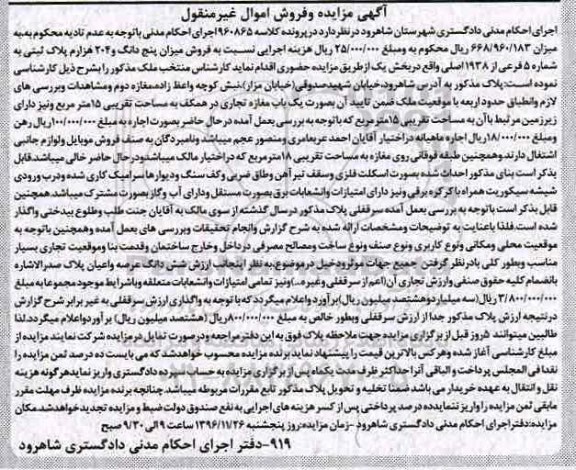 آگهی مزایده وفروش اموال غیرمنقول
اجرای احکام مدنی دادگستری شهرستان شاهرود در نظر دارد در پرونده کلاسه ۹۶۰۸۶۵ اجرای احکام مدنی باتوجه به عدم تادیه محکوم به به
میزان ۶۶۸/۹۶۰/۱۸۳ ریال محکوم به ومبلغ ۲۵/۰۰۰/۰۰۰ ریال هزینه اجرایی نسبت به فروش میزان پنج دانگ و۲۰۴ هزارم پلاک ثبتی به
شماره ۵ فرعی از ۱۹۳۸ اصلی واقع دربخش یک از طریق مزایده حضوری اقدام نماید کارشناس منتخب ملک مذکور را بشرح ذیل کارشناسی
نموده است: پلاک مذکور به آدرس شاهرود، خیابان شهیدصدوقی(خیابان مزار)، نبش کوچه واعظ زاده، مغازه دوم ومشاهدات وبررسی های
لازم وانطباق حدود اربعه با موقعیت ملک ضمن تایید آن بصورت یک باب مغازه تجاری در همکف به مساحت تقریبی ۱۵متر مربع ونیز دارای
زیرزمین مرتبط باآن به مساحت تقریبی ۱۵متر مربع که باتوجه به بررسی بعمل آمده درحال حاضر بصورت اجاره به مبلغ ۱۰۰/۰۰۰/۰۰۰ ریال رهن
ومبلغ ۱۸/۰۰۰/۰۰۰ ریال اجاره ماهیانه دراختیار آقایان احمد عربعامری ومنصور عجم میباشد ونامبردگان به صنف فروش موبایل ولوازم جانبی
اشتغال دارند وهمچنین طبقه فوقانی روی مغازه به مساحت تقریبی ۱۸متر مربع که دراختیار مالک میباشد ودرحال حاضر خالی میباشد، قابل
بذکر است بنای مذکور احداث شده بصورت اسکلت فلزی وسقف تیر آهن وطاق ضربی وکف سنگ ودیوارها سرامیک کاری شده ودرب ورودی
شیشه سیکوریت همراه با کرکره برقی ونیز دارای امتیازات وانشعابات برق بصورت مستقل ودارای آب وگاز بصورت مشترک میباشد همچنین
قابل بذکر است باتوجه به بررسی بعمل آمده سرقفلی پلاک مذکور درسال گذشته از سوی مالک به آقایان جنت طلب وطلوع بیدختی واگذار
شده است. فلذا باعنایت به توضیحات ومشخصات ارائه شده به شرح گزارش وانجام تحقیقات وبررسی های بعمل آمده وهمچنین باتوجه به
موقعیت محلی ومکانی ونوع کاربری ونوع صنف ونوع ساخت ومصالح مصرفی در داخل وخارج ساختمان وقدمت بنا وموقعیت تجاری بسیار
مناسب وبطور کلی بادرنظر گرفتن جمیع جهات موثر ودخیل درموضوع، به نظر اینجانب ارزش شش دانگ عرصه واعیان پلاک صدرالاشاره
بانضمام کلیه حقوق صنفی وارزش تجاری آن(اعم از سرقفلی وغیره...)ونیز تمامی امتیازات وانشعابات متعلقه وباشرایط موجود مجموعا به مبلغ
۳/۸۰۰/۰۰۰/۰۰۰ ریال(سه میلیارد وهشتصد میلیون ریال)برآورد واعلام میگردد که با توجه به واگذاری ارزش سرقفلی به غیر برابر شرح گزارش
در نتیجه ارزش پلاک مذکور جدا از ارزش سرقفلی وبطور خالص به مبلغ ۸۰۰/۰۰۰/۰۰۰ ریال (هشتصد میلیون ریال) برآورد واعلام میگردد لذا
طالبین میتوانند ۵ روز قبل از برگزاری مزایده جهت ملاحظه پلاک فوق به این دفتر مراجعه ودرصورت تمایل در مزایده شرکت نمایند مزایده از
مبلغ کارشناسی آغاز شده وهرکس بالاترین قیمت را پیشنهاد نماید برنده مزایده محسوب خواهد شد که می بایست ده درصد ثمن مزایده را
نقدا فی المجلس پرداخت و الباقی آنرا حداکثر ظرف مدت یکماه پس از برگزاری مزایده به حساب سپرده دادگستری واریز نماید هرگونه هزینه
نقل و انتقال به عهده خریدار می باشد ضمنا تخلیه و تحویل پلاک مذکور تابع مقررات مربوطه میباشد. چنانچه برنده مزایده ظرف مهلت مقرر
مابقی ثمن مزایده را واریز ننماید ده در صد پرداختی پس از کسر هزینه های اجرایی به نفع صندوق دولت ضبط و مزایده تجدید خواهد شد، مکان
مزایده: دفتر اجرای احکام مدنی دادگستری شاهرود -زمان مزایده: روز پنجشنبه ۱۳۹۶/۱۱/۲۶ ساعت ۹ الی ۹/۳۰ صبح
۹۱۹- دفتر اجرای احکام مدنی دادگستری شاهرود